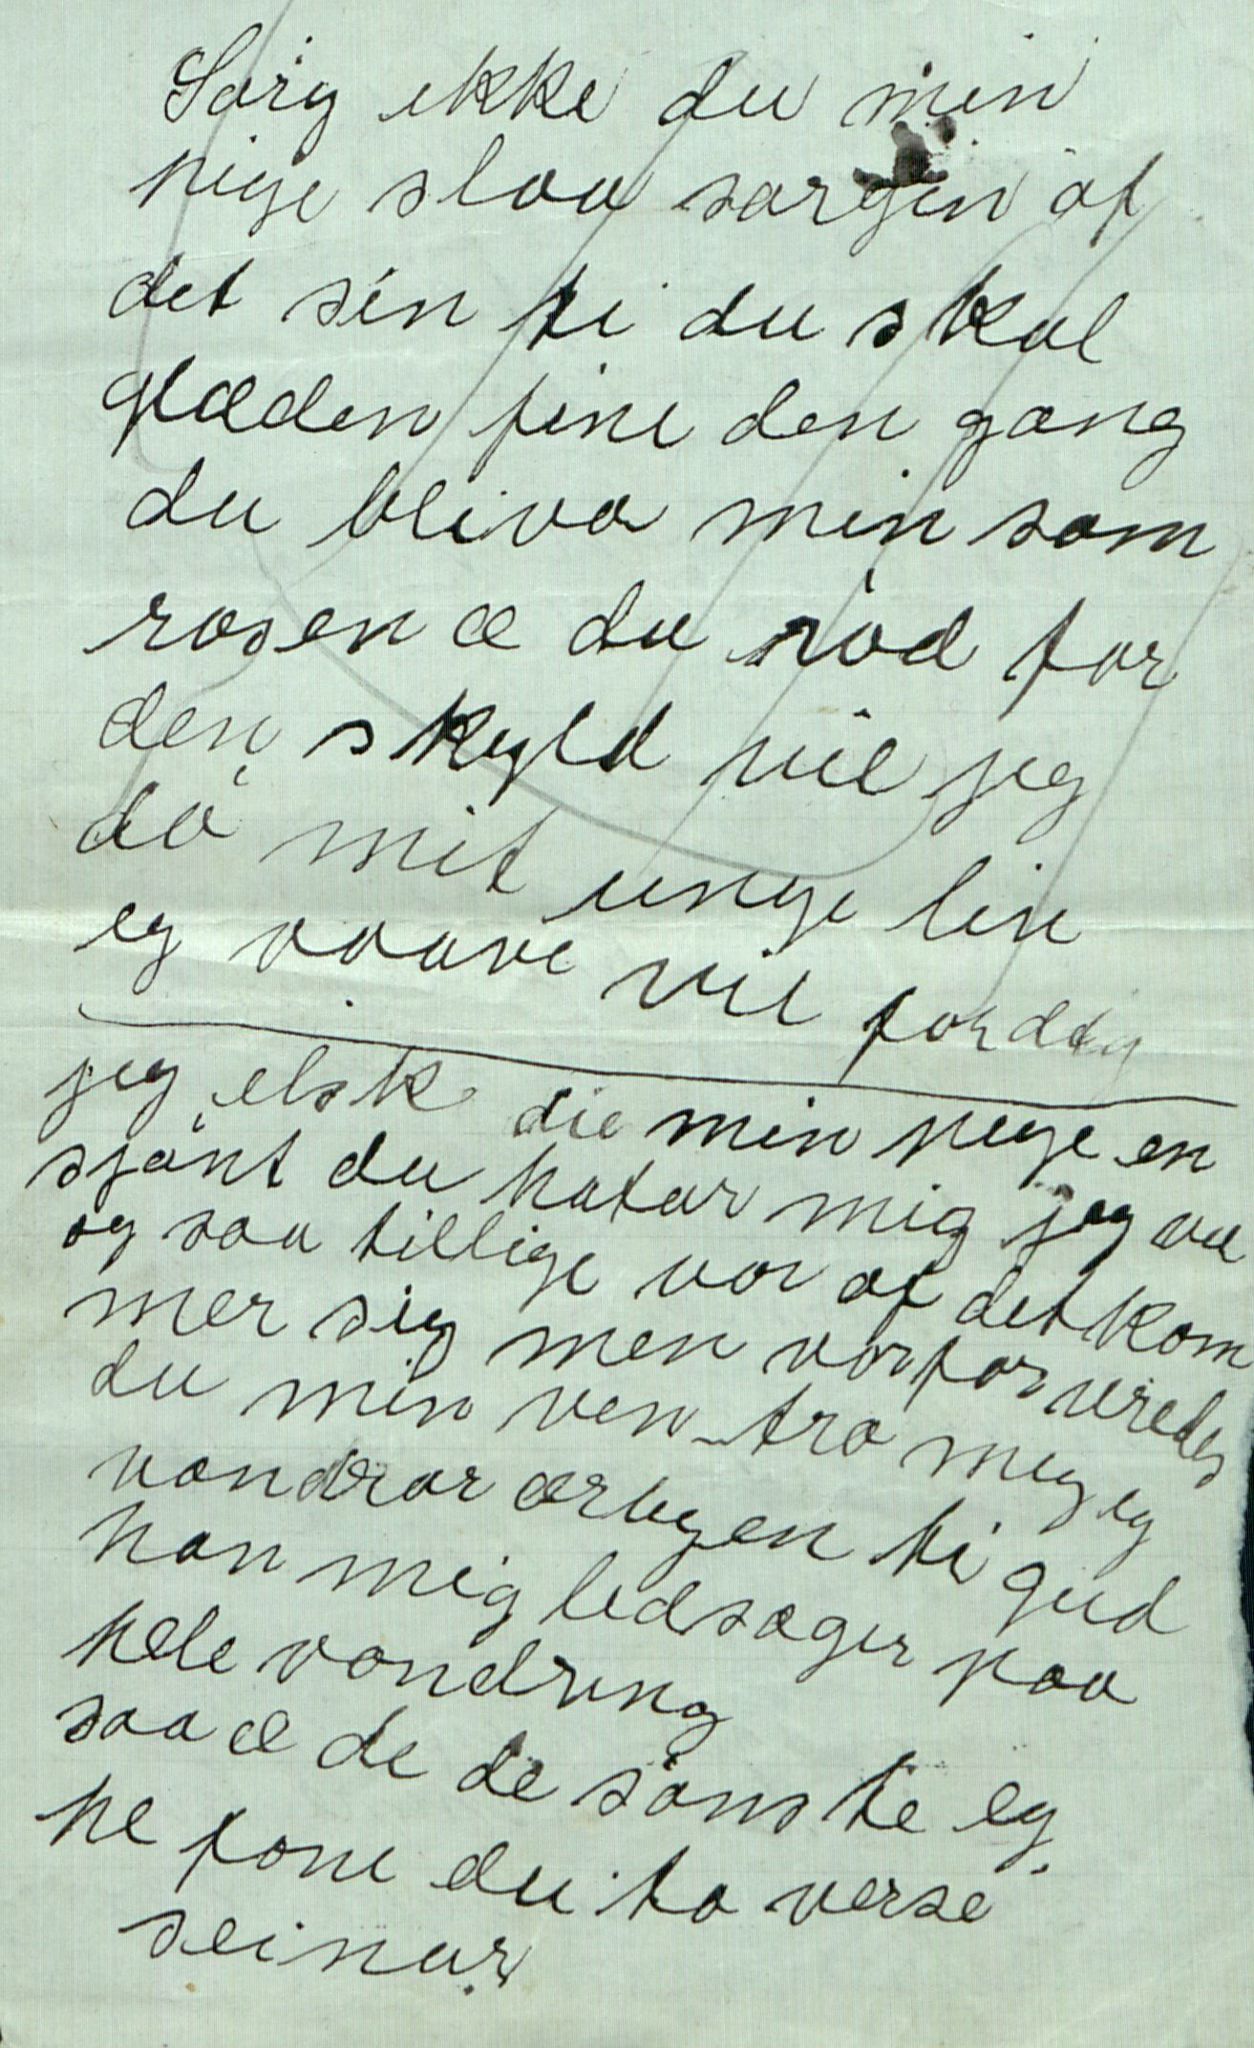 Sørg ikke du min
pige slaa sargen af
det sin ti du skal
glæden fine den gang
du bliva min som
rosen æ du rød for
den skyld vil jeg
dø mit unge liv
eg vaave vil for dig
jeg elsk die min pige en
sjønt du hatar mig jeg væl
og saa tillige vor af det kom
mer sig men vorfor vredes
du min ven tro meg eg
vandrar ærlygen ti gud
han mig ledsager paa
hele vandring
saa æ de de sønste eg
he fone du ta verse
seinar